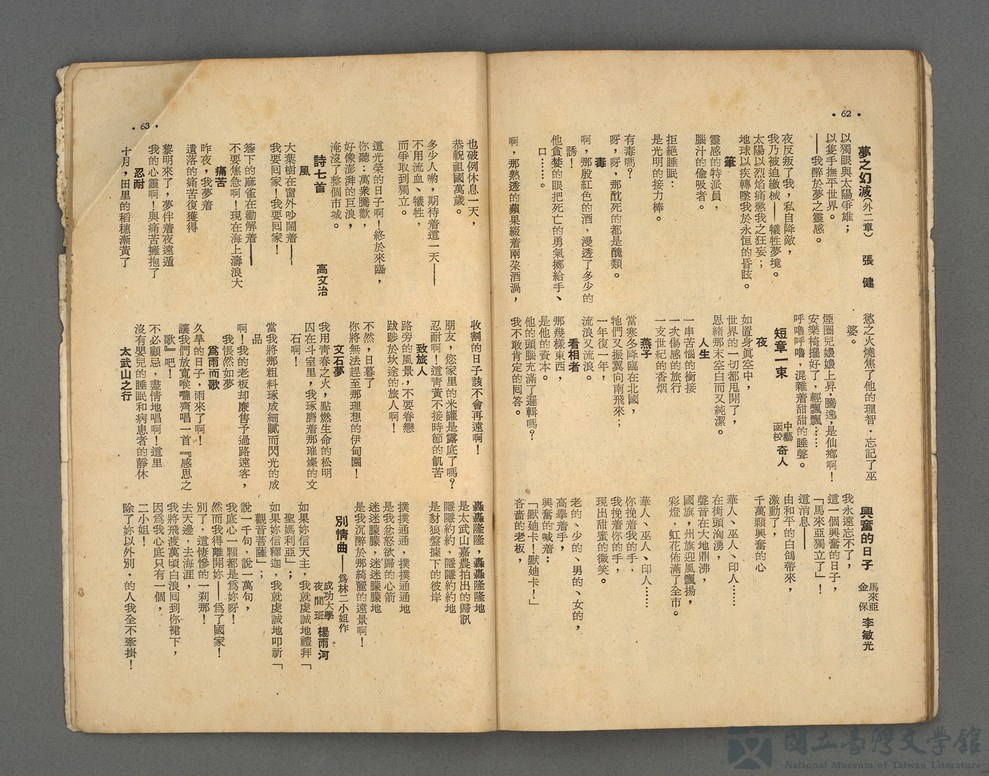 • 62 •
夢之幻滅（外二章） 張 健
以獨眼與太陽爭雄；
以隻手撫平世界。
——我醉於夢之靈感。
夜反叛了我，私自降敵，
我乃被迫繳械——犧牲夢境。
太陽以烈焰痛懲我之狂妄；
地球以疾轉墜我於永恒的昏眩。
筆
靈感的特派員，
腦汁的偷吸者。
拒絕睡眠：
是光明的接力棒。
毒
有毒嗎？
呀，呀，那酖死的都是醜類。
啊，那殷紅色的酒，漫透了多少的
誘！
他貪婪的眼把死亡的勇氣擲給手、
口……。
啊，那熟透的蘋果綴着兩朶酒渦，
慾之火燒焦了他的理智，忘記了巫
婆。
煙圈兒嬝嬝上昇，飄逸，是仙鄉啊！
安樂椅擺好了，輕飄飄……
呼嚕呼嚕，混雜着甜甜的睡聲。
短章一束 中藝函校 奇人
夜
如置身眞空中，
世界的一切都甩開了，
思緖那末空白而又純潔。
人生
一串苦惱的銜接
一次傷感的旅行
一支世紀的香烟
燕子
當寒冬降臨在北國，
牠們又振翼向南飛來；
一年復一年，
流浪又流浪。
看相者
那幾樣東西，
是他的資本。
他的頭腦充滿了邏輯嗎？
我不敢肯定的囘答。
興奮的日子 馬來亞金保 李敏光
我永遠忘不了，
這一個興奮的日子，
「馬來亞獨立了！」
這消息——
由和平的白鴿帶來，
激動了，
千萬顆興奮的心
華人、巫人、印人……
在街頭洶湧，
聲音在大地鼎沸，
國旗，州旗迎風飄揚，
彩燈，虹花佈滿了全市。
華人、巫人、印人……
你挽着我的手，
我挽着你的手，
現出甜蜜的微笑。
老的、少的、男的、女的，
高舉着手，
興奮的喊着：
「默廸卡！默廸卡！」
吝嗇的老板，
• 63 •
也破例休息一天，
恭祝祖國萬歲。
多少人喲，期待着這一天——
不用流血、犧牲，
而爭取到獨立。
道光榮的日子啊！終於來臨，
你聽：萬衆騰歡，
好像澎湃的巨浪，
淹沒了整個市城。
詩七首 高文治
風
大葉樹在窗外吵鬧着——
我要回家！我要回家！
簷下的麻雀在勸解着——
不要焦急啊！現在海上濤浪大
痛苦
昨夜，我夢着
遺落的痛苦復獲得
黎明來了，夢伴着夜遠遁
我的心靈啊！與痛苦擁抱了
忍耐
十月，田里的稻穗漸黃了
收割的日子該不會再遠啊！
朋友，您家里的米罐是露底了嗎？
忍耐啊！這靑黃不接時節的飢苦
致旅人
路旁的風景，不要眷戀
跋踄於旅途的旅人啊！
不然，日暮了
你將無法趕至那理想的伊甸園！
文石夢
我用青春之火，點燃生命的松明
囚在斗室里，我琢磨着那璀燦的文
石啊！
當我將那粗料琢成細膩而閃光的成
品
啊！我的老板却廉售予過路遠客，
我悵然如夢
爲雨而歌
久旱的日子，雨來了啊！
讓我們放寬喉嚨齊唱一首『感恩之
歌』吧！
不必顧忌，盡情地唱啊！這里
沒有嬰兒的睡眠和病患者的靜休
太武山之行
轟轟隆隆，轟轟隆隆地
是太武山嘉農拍出的歸訊
隱隱約約，隱隱約約地
是豺狼盤據下的彼岸
撲撲通通，撲撲通通地
是我忿怒欲歸的心箭
迷迷朦朦，迷迷朦朦地
是我沉醉於那綺麗的遠景啊！
別情曲——爲林二小姐作
成功大學夜間班 楊雨河
如果妳信天主，我就虔誠地禮拜「
聖媽利亞」；
如果妳信釋迦，我就虔誠地叩祈「
觀音菩薩」；
說一千句，說一萬句，
我底心一顆都是爲妳呀！
然而我得離開妳——爲了國家！
別了，這悽慘的一刹那！
去天邊、去海涯，
我將飛渡萬頃白浪囘到你裙下，
因爲我心底只有一個，
二小姐！
除了妳以外別，的人我全不牽掛！
國立臺灣文學館
National Museum of Taiwan Literature